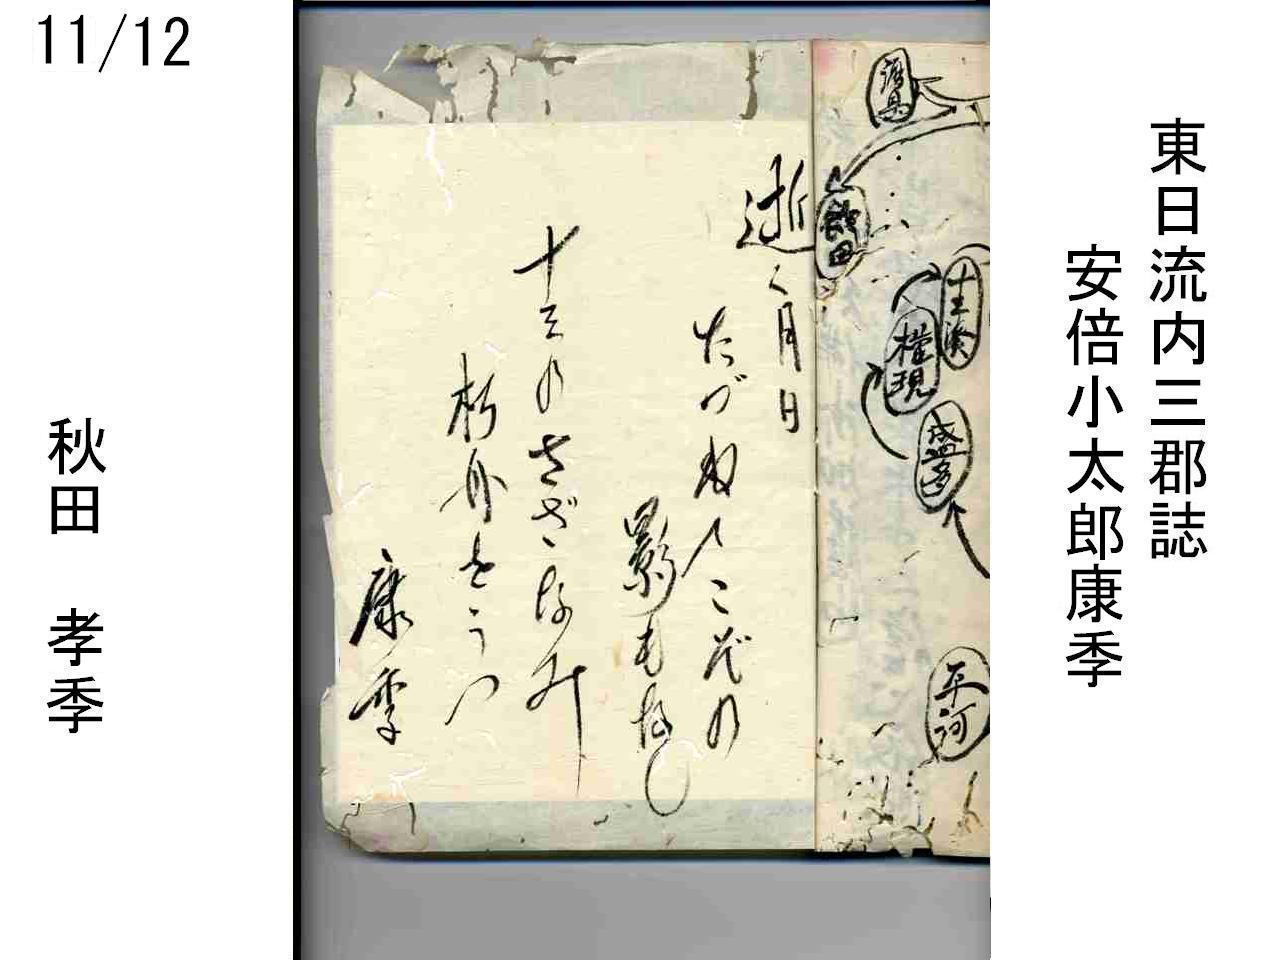 11/12
東日流内三郡誌
安倍小太郎康季
平河
権現
飯田
逝く月日
たづぬ人こぞの
影もなし
十三のさざなみ
舟をうつ
康季
秋田 孝季